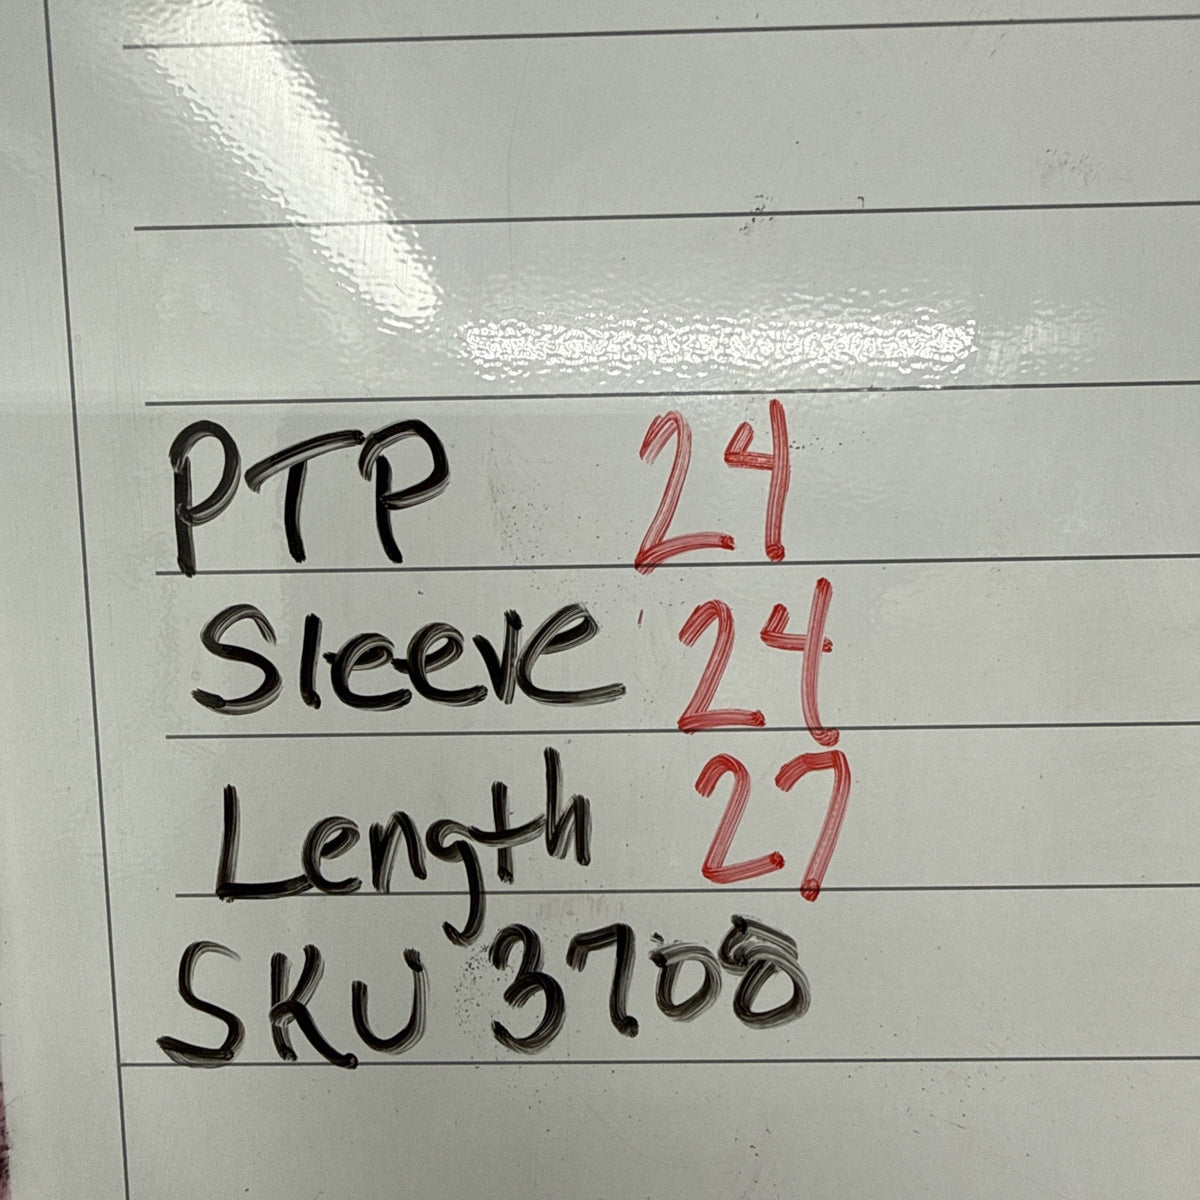 PTP 24
Sleeve 24
Length 27
SKU 3708